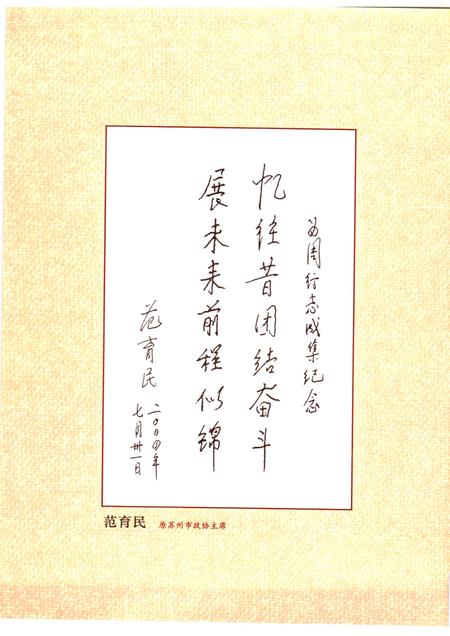 周行志成集纪念
忆往昔团结奋斗
展未来前程似锦
范育民
二〇〇四年
七月卅一日
范育民 原苏州市政协主席